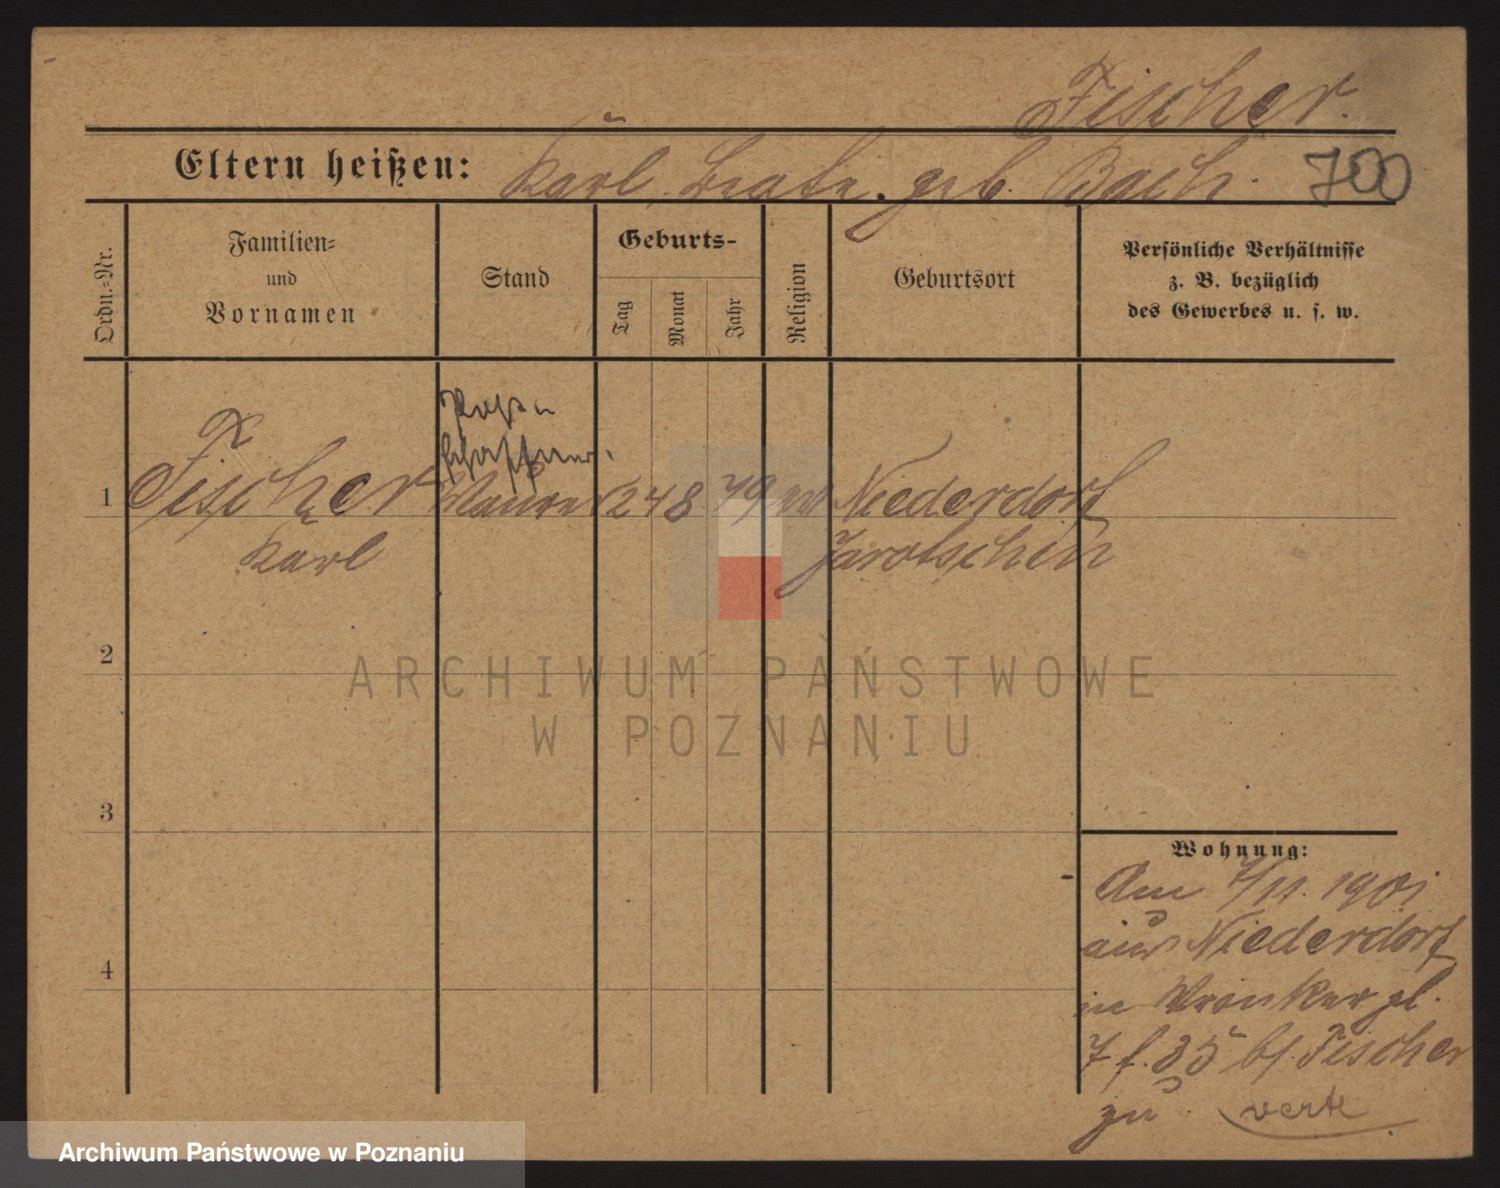 Fischer.
Eltern heißen: Karl, Beate. geb. Bach. 700
Ordn.-Nr.
Familien-
und
Vornamen
Stand
Geburts-
Tag
Monat
Jahr
Religion
Geburtsort
Persönliche Verhältnisse
z. B. bezüglich
des Gewerbes u. s. w.
1 Fischer Maurer 24 8 79 ev Niederdorf
Karl Jarotschin
2
3
4
Wohnung:
Am 7/11. 1901
aus Niederdorf
in Wronkerpl.
7 f. 35 bj. Fischer
zu. verte
ARCHIWUM PAŃSTWOWE
W POZNANIU
Archiwum Państwowe w Poznaniu